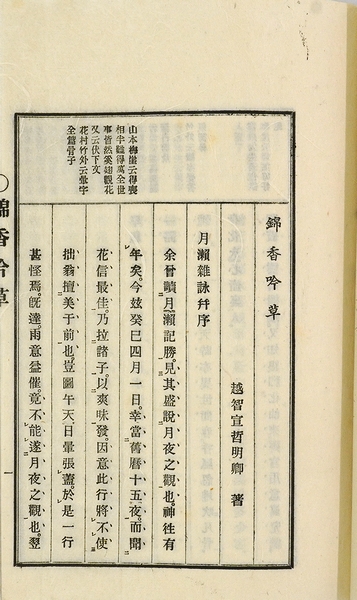 錦香吟草
越智宣哲明卿 著
月瀨雜詠幷序
余嘗讀月瀨記勝。見其盛說月夜之觀也。神往有
年矣。今玆癸巳四月一日。幸當舊曆十五夜。而聞
花信最佳。乃拉諸子。以爽昧發。因意此行將不使
拙翁擅美于前也。豈圖午天。日暈張蓋。於是一行
甚怪焉。旣達。雨意益催。竟不能遂月夜之觀也。翌
山本梅崖云得喪
相半難得萬全世
事皆然奚翅觀花
又云伏下文
花村竹外云暈字
全篇骨子
錦香吟草
一